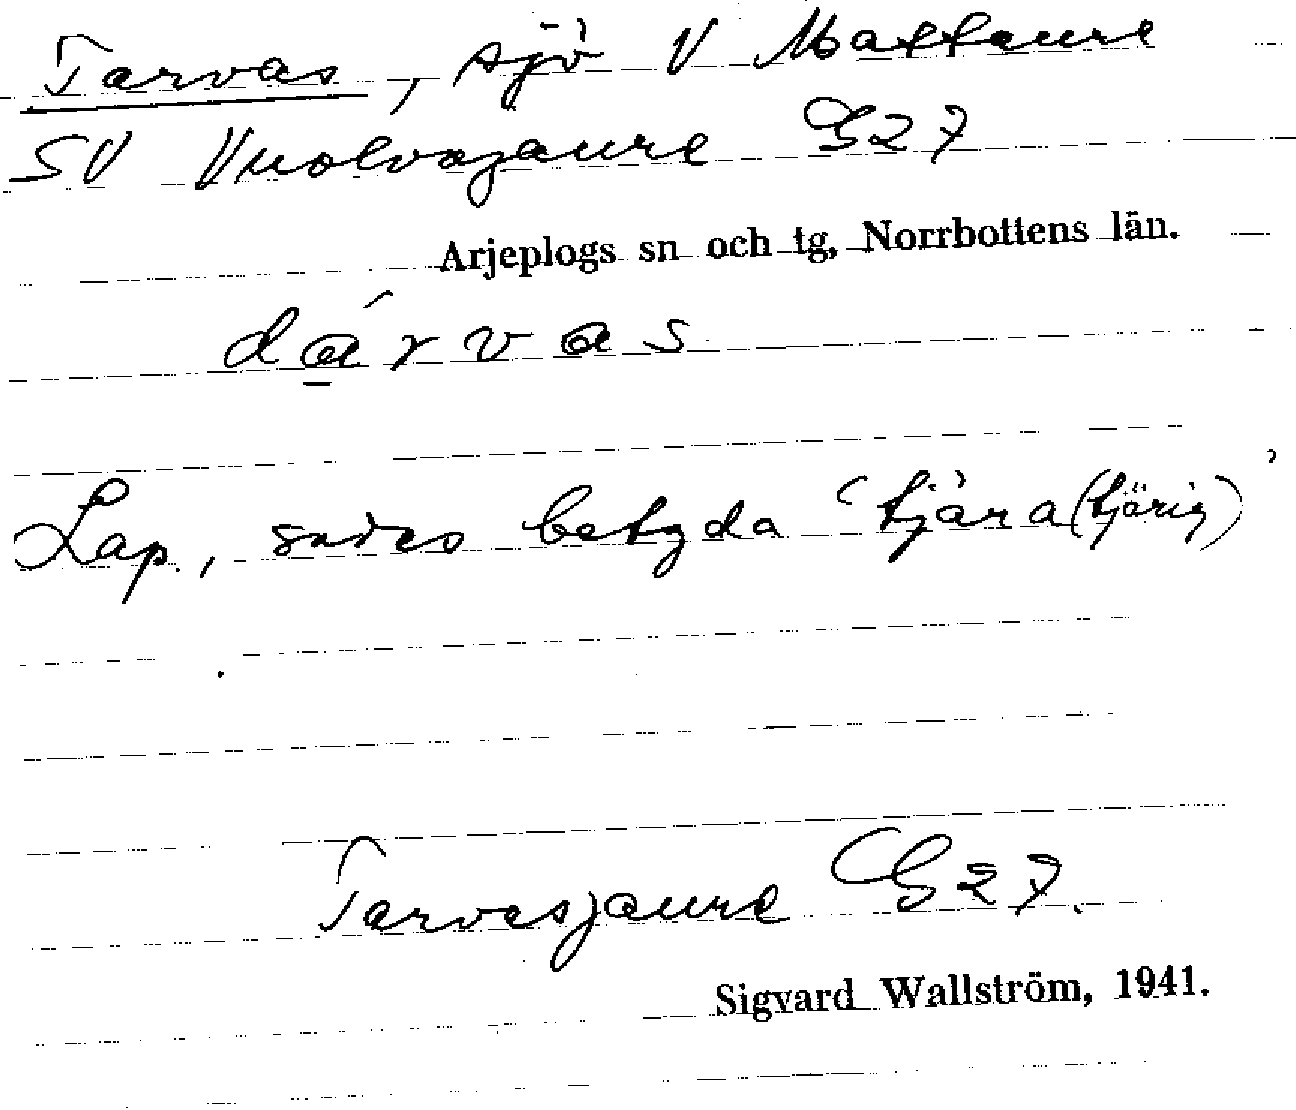 Tarvas, sjö V Mattaure
SV Vuolvojaure G27
Arjeplogs sn och tg, Norrbottens län.
dá̱rvas
Lap., sades betyda 'tjära (tjärig)'
Tarvasjaure G27.
Sigvard Wallström, 1941.